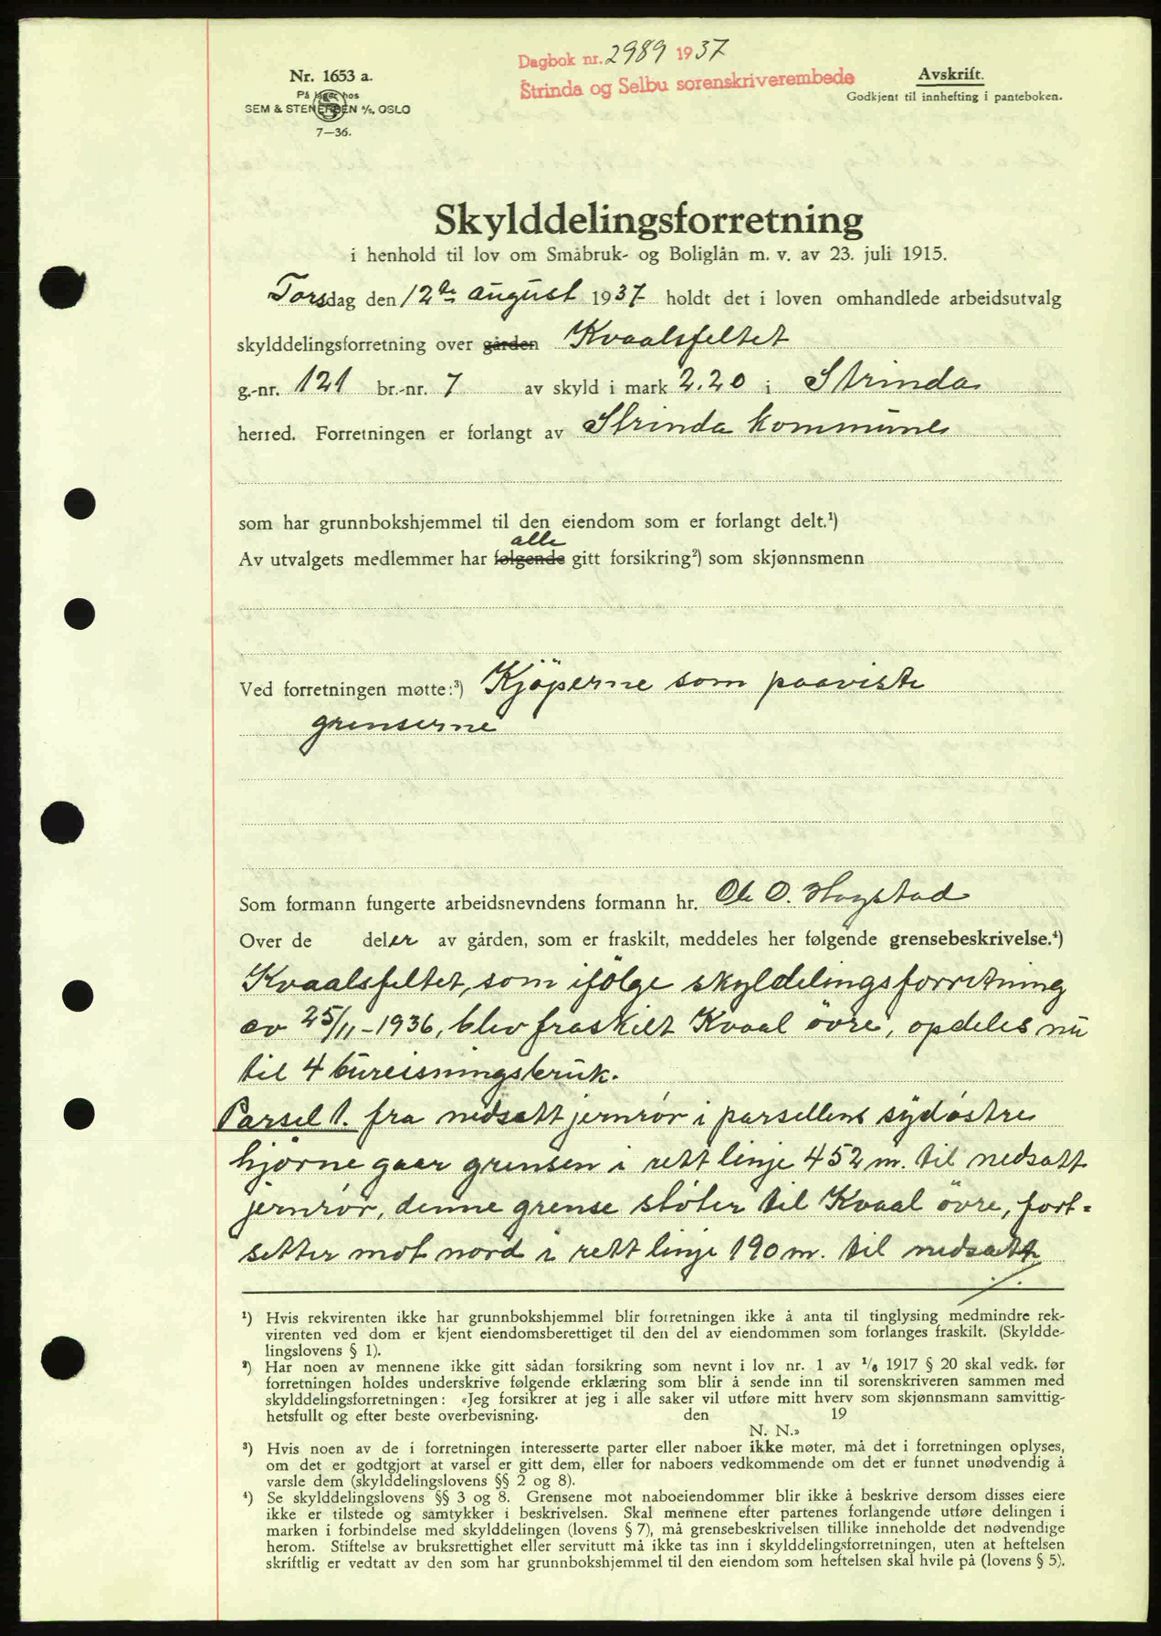 Dagbok nr. 2989 1937
Strinda og Selbu sorenskriverembede
Nr. 1653 a.
På lager hos
SEM & STENERSEN A/S, OSLO
7—36.
Avskrift.
Godkjent til innhefting i panteboken.
Skylddelingsforretning
i henhold til lov om Småbruk- og Boliglån m. v. av 23. juli 1915.
Torsdag den 12te august 1937 holdt det i loven omhandlede arbeidsutvalg
skylddelingsforretning over gården Kvaalsfeltet
g.-nr. 121 br.-nr. 7 av skyld i mark 2.20 i Strinda
herred. Forretningen er forlangt av Strinda kommune
som har grunnbokshjemmel til den eiendom som er forlangt delt.¹)
alle
Av utvalgets medlemmer har følgende gitt forsikring²) som skjønnsmenn
Ved forretningen møtte:³) Kjöperne som paaviste
grenserne
Som formann fungerte arbeidsnevndens formann hr. Ole O. Hogstad
Over de deler av gården, som er fraskilt, meddeles her følgende grensebeskrivelse.⁴)
Kvaalsfeltet, som ifölge skyldelingsforretning
av 25/11-1936, blev fraskilt Kvaal övre, opdeles nu
til 4 bureisningsbruk.
Parsel 1. fra nedsatt jernrör i parsellens sydöstre
hjörne gaar grensen i rett linje 452 m. til nedsatt
jernrör, denne grense stöter til Kvaal övre, fort-
setter mot nord i rett linje 190 m. til nedsatt
./.
¹) Hvis rekvirenten ikke har grunnbokshjemmel blir forretningen ikke å anta til tinglysing medmindre rek-
virenten ved dom er kjent eiendomsberettiget til den del av eiendommen som forlanges fraskilt. (Skyldde-
lingslovens § 1).
²) Har noen av mennene ikke gitt sådan forsikring som nevnt i lov nr. 1 av 1/6 1917 § 20 skal vedk. før
forretningen holdes underskrive følgende erklæring som blir å sende inn til sorenskriveren sammen med
skylddelingsforretningen: «Jeg forsikrer at jeg i alle saker vil utføre mitt hverv som skjønnsmann samvittig-
hetsfullt og efter beste overbevisning. den 19
N. N.»
³) Hvis noen av de i forretningen interesserte parter eller naboer ikke møter, må det i forretningen oplyses,
om det er godtgjort at varsel er gitt dem, eller for naboers vedkommende om det er funnet unødvendig å
varsle dem (skylddelingslovens §§ 2 og 8).
⁴) Se skylddelingslovens §§ 3 og 8. Grensene mot naboeiendommer blir ikke å beskrive dersom disses eiere
ikke er tilstede og samtykker i beskrivelsen. Skal mennene efter partenes forlangende utføre delingen i
marken i forbindelse med skylddelingen (lovens § 7), må grensebeskrivelsen tillike inneholde det nødvendige
herom. Stiftelse av bruksrettighet eller servitutt må ikke tas inn i skylddelingsforretningen, uten at heftelsen
skriftlig er vedtatt av den som har grunnbokshjemmel til den eiendom som heftelsen skal hvile på (lovens § 5).